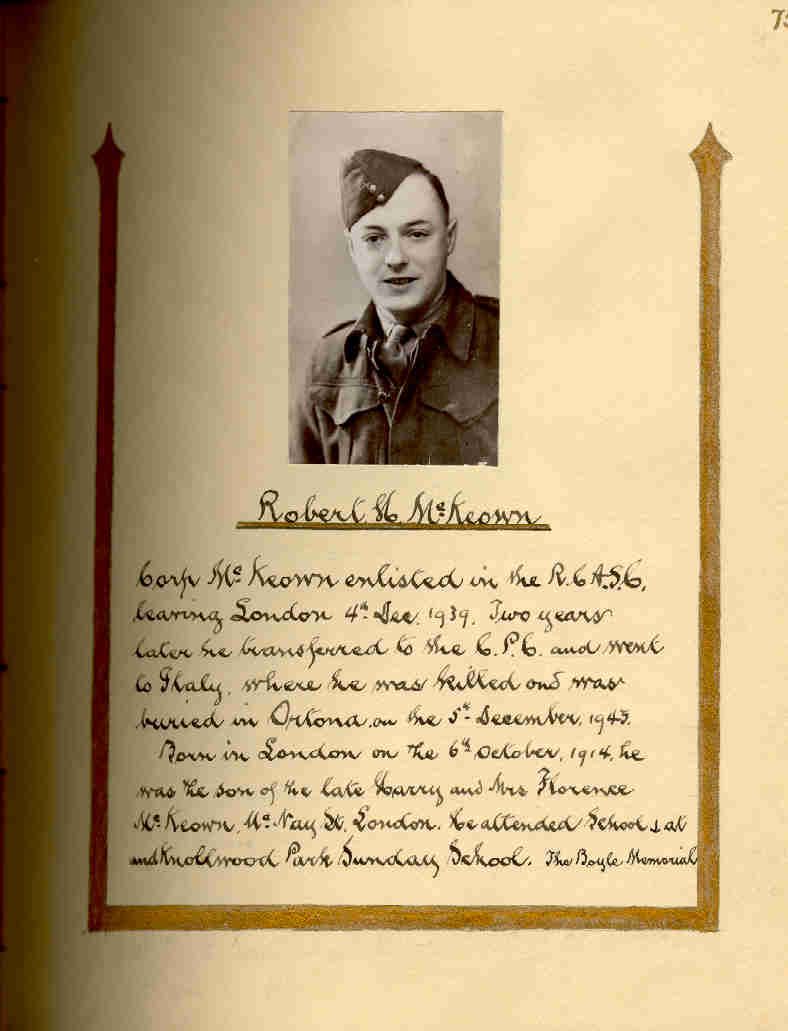 73
Robert H. McKeown
Corp McKeown enlisted in the R.C.A.S.C,
leaving London 4th Dec. 1939. Two years
later he transferred to the C.P.C. and went
to Italy, where he was killed and was
buried in Ortona, on the 5th December, 1943.
Born in London on the 6th October, 1914, he
was the son of the late Harry and Mrs Florence
McKeown, McNay St. London. He attended School ⊥ at
and Knollwood Park Sunday School. The Boyle Memorial